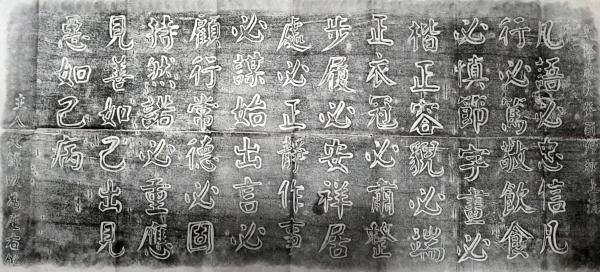 凡語必忠信凡
行必篤敬飲食
必慎節字畫必
楷正容貌必端
正衣冠必肅整
步履必安祥居
處必正靜作事
必謀始出言必
顧行常德必固
持然諾必重應
見善如己出見
惡如己病